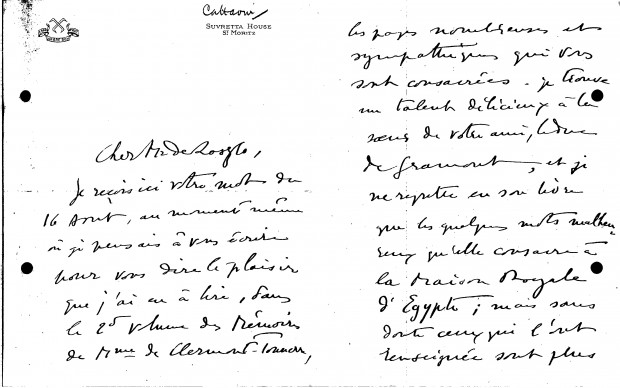 Cattaoui
SUVRETTA HOUSE
ST MORITZ
Cher Mr de Laszlo,
Je reçois ici votre mot du
16 Août, au moment même
où je pensais à vous écrire
pour vous dire le plaisir
que j'ai eu à lire, dans
le 2d volume des Mémoires
de Mme de Clermont-Tonnerre,
les pages nombreuses et
sympathiques qui vous
sont consacrées. je trouve
un talent délicieux à la
sœur de votre ami, le duc
de Gramont, et je
ne regrette en son livre
que les quelques mots malheu-
reux qu'elle consacre à
la Maison Royale
d'Egypte ; mais sans
doute ceux qui l'ont
renseignée sont plus